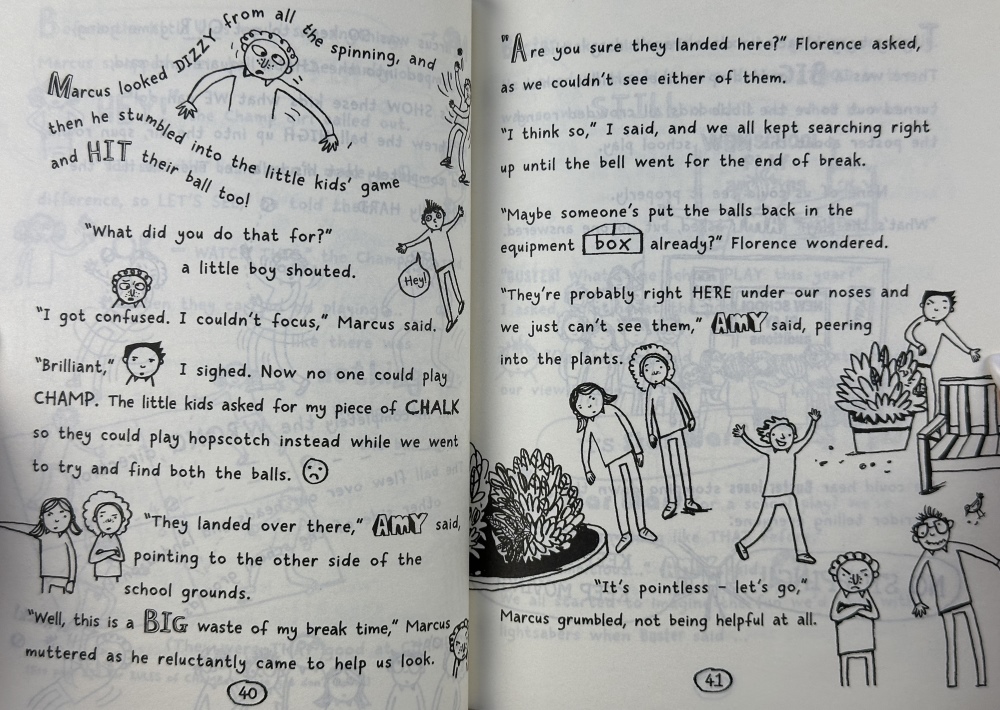 Marcus looked DIZZY from all the spinning, and
then he stumbled into the little kids' game
and HIT their ball too!
"What did you do that for?"
a little boy shouted.
Hey!
"I got confused. I couldn't focus," Marcus said.
"Brilliant," I sighed. Now no one could play
CHAMP. The little kids asked for my piece of CHALK
so they could play hopscotch instead while we went
to try and find both the balls.
"They landed over there," AMY said,
pointing to the other side of the
school grounds.
"Well, this is a BIG waste of my break time," Marcus
muttered as he reluctantly came to help us look.
40
"Are you sure they landed here?" Florence asked,
as we couldn't see either of them.
"I think so," I said, and we all kept searching right
up until the bell went for the end of break.
"Maybe someone's put the balls back in the
equipment box already?" Florence wondered.
"They're probably right HERE under our noses and
we just can't see them," AMY said, peering
into the plants.
"It's pointless – let's go,"
Marcus grumbled, not being helpful at all.
41